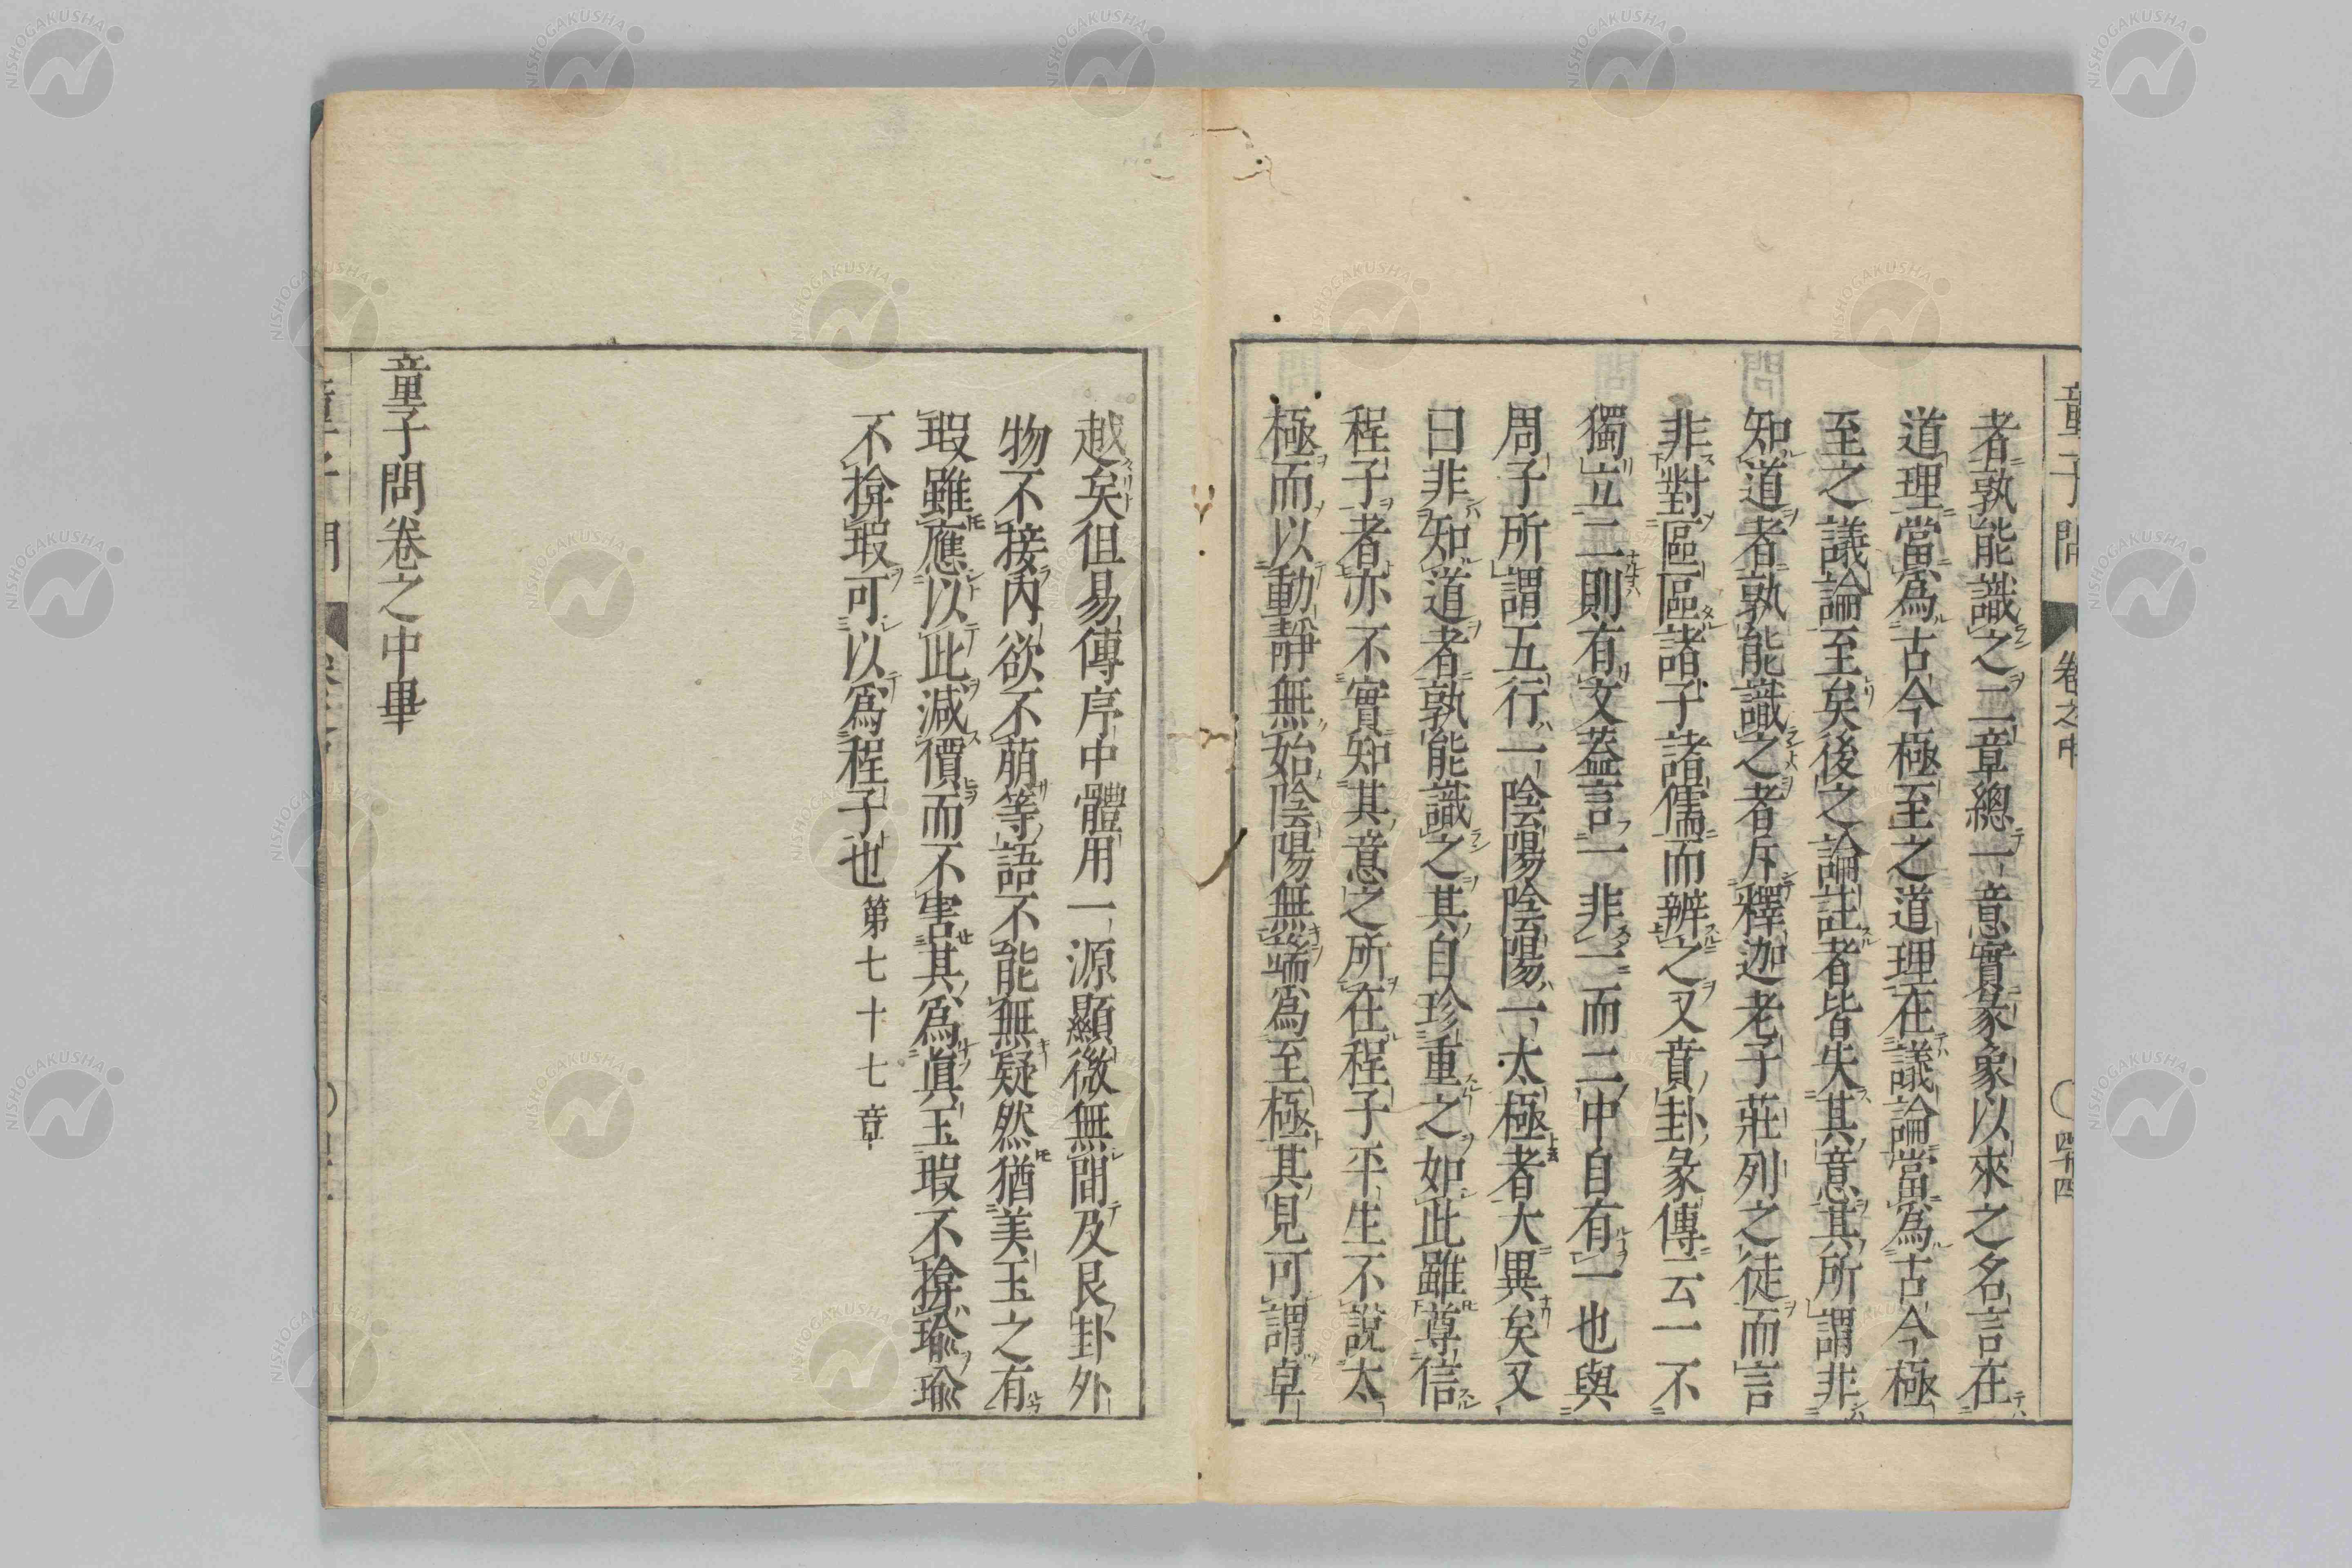 童子問
卷之中
四十四
者孰能識之二章總一意實彖象以來之名言在
道理當爲古今極至之道理在議論當爲古今極
至之議論至矣後之論註者皆失其意其所謂非
知道者孰能識之者斥釋迦老子莊列之徒而言
非對區區諸子諸儒而辨之又賁卦彖傳云一不
獨立二則有文蓋言一非二而二中自有一也與
周子所謂五行一陰陽陰陽一太極者大異矣又
曰非知道者孰能識之其自珍重之如此雖尊信
程子者亦不實知其意之所在程子平生不說太
極而以動靜無始陰陽無端爲至極其見可謂卓
越矣但易傳序中體用一源顯微無間及艮卦外
物不接內欲不萌等語不能無疑然猶美玉之有
瑕雖應以此減價而不害其爲眞玉瑕不揜瑜瑜
不揜瑕可以爲程子也第七十七章
童子問卷之中畢